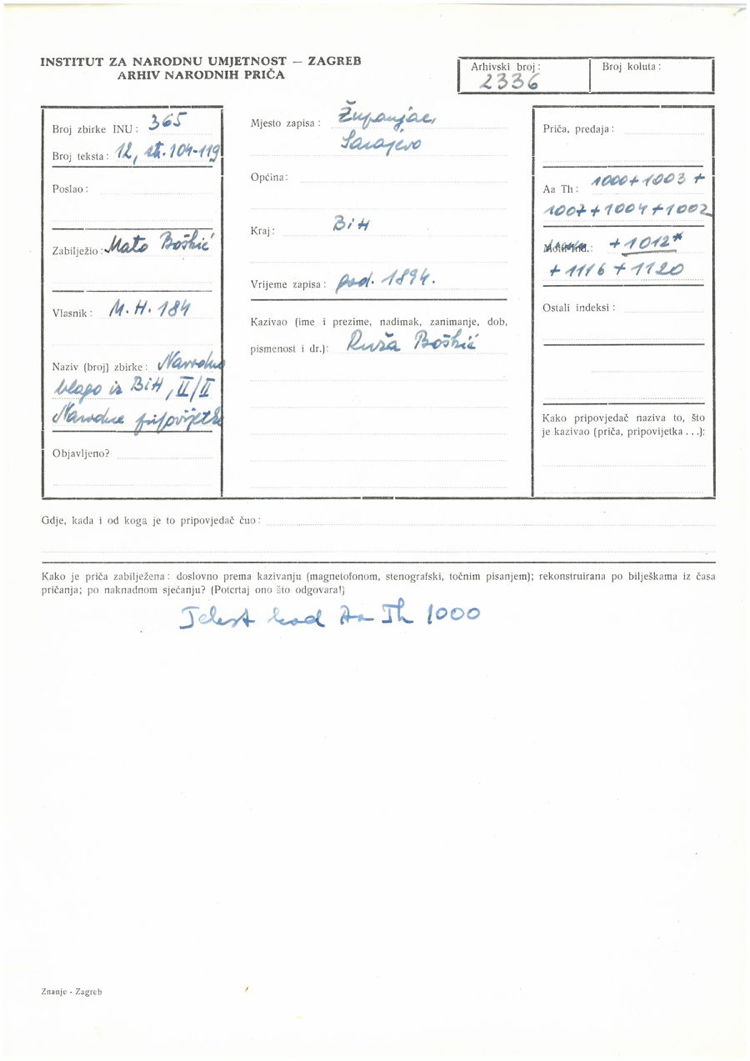 INSTITUT ZA NARODNU UMJETNOST — ZAGREB
ARHIV NARODNIH PRIČA
Arhivski broj:
2336
Broj koluta:
Broj zbirke INU: 365
Broj teksta: 12, str. 104-119
Poslao:
Zabilježio: Mato Boškić
Vlasnik: M.H. 184
Naziv (broj) zbirke: Narodno
blago iz BiH, II/II
Narodne pripovijetke
Objavljeno?
Mjesto zapisa: Županjac,
Sarajevo
Općina:
Kraj: BiH
Vrijeme zapisa: god. 1894.
Kazivao (ime i prezime, nadimak, zanimanje, dob,
pismenost i dr.): Ruša Boškić
Priča, predaja:
Aa Th: 1000+1003+
1007+1004+1002
+1012*
+1116+1120
Ostali indeksi:
Kako pripovjedač naziva to, što
je kazivao (priča, pripovijetka . . .):
Gdje, kada i od koga je to pripovjedač čuo:
Kako je priča zabilježena: doslovno prema kazivanju (magnetofonom, stenografski, točnim pisanjem); rekonstruirana po bilješkama iz časa
pričanja; po naknadnom sjećanju? (Potcrtaj ono što odgovara!)
Tekst kod Aa Th 1000
Znanje - Zagreb